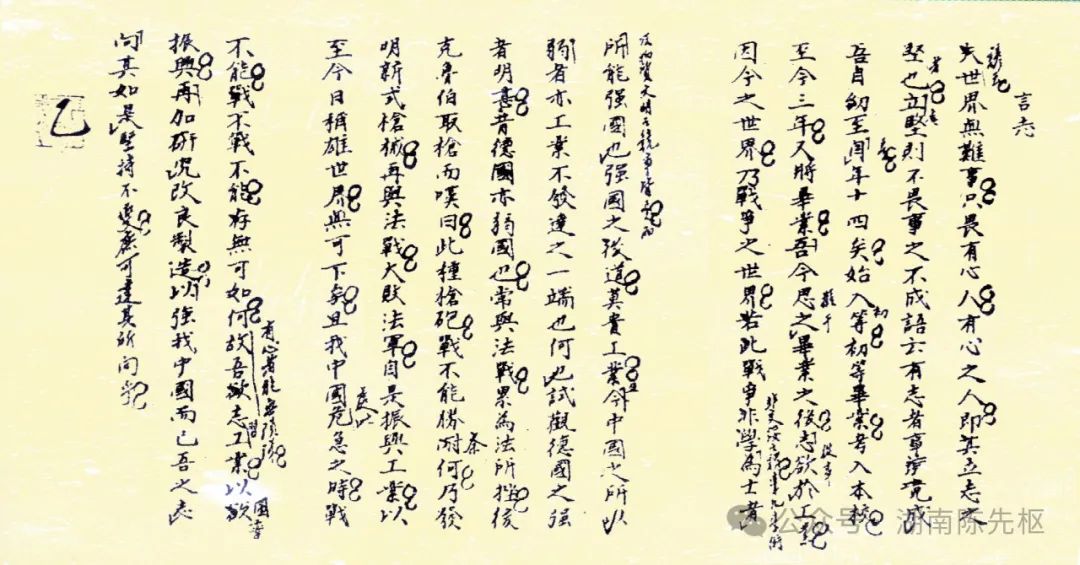 言志
夫世界無難事只畏有心人有心之人即其立志之
堅也立堅則不畏事之不成語云有志者事竟成
吾自幼至今年十四矣始入等初等畢業考入本校
至今三年又將畢業吾今思之畢業之後志欲於工
因今之世界乃戰爭之世界若此戰爭非學為士者
所能强國也强國之後道莫貴工業今中國之所以
弱者亦工業不發達之一端也何也試觀德國之强
者明甚昔德國亦弱國也常與法戰累為法所挫後
克魯伯取槍而嘆曰此種槍砲戰不能勝耐何乃發
明新式槍械再與法戰大敗法軍自是振興工業以
至今日稱雄世界無可下矣且我中國危急之時戰
不能戰不戰不能存無可如何故吾欲志工業以欲
振興再加研究改良製造以强我中國而已吾之志
向其如是堅持不變庶可達其所向歟
乙
公众号 · 湖南陈先枢